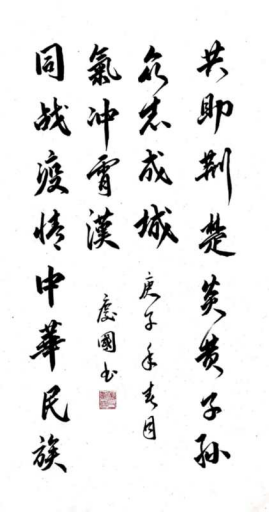 共助荆楚炎黄子孙
众志成城
庚子年春月
氣冲霄漢
慶國书
同战疫情中華民族